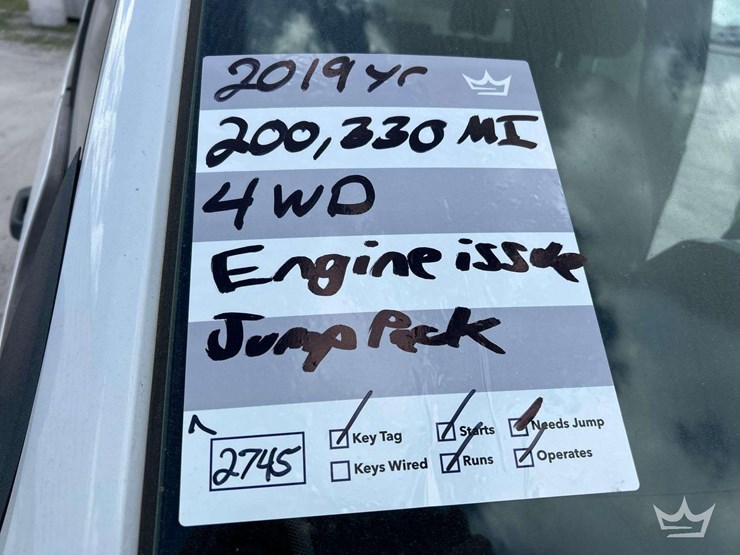 2019 yr
200,330 MI
4WD
Engine issue
Jump Pack
2745
Key Tag
Starts
Needs Jump
Keys Wired
Runs
Operates